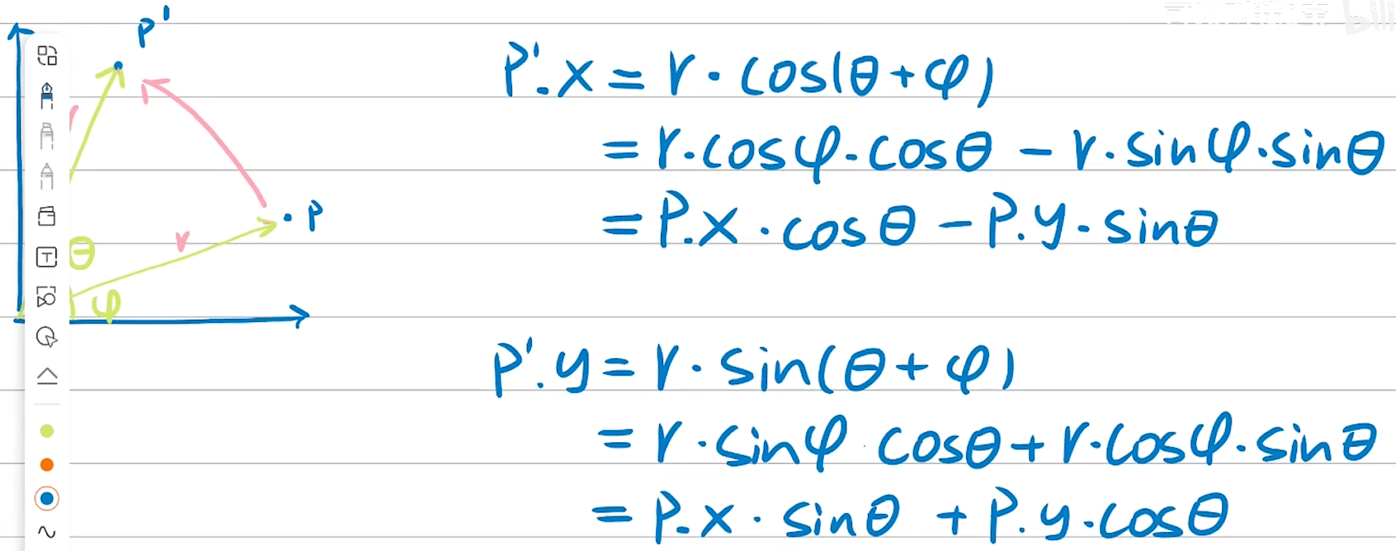 P'
P'.x = r · cos(θ + φ)
= r·cosφ·cosθ - r·sinφ·sinθ
= P.x · cosθ - P.y · sinθ
P
r
θ
φ
P'.y = r · sin(θ + φ)
= r · sinφ · cosθ + r·cosφ·sinθ
= P.x · sinθ + P.y · cosθ
T
bili